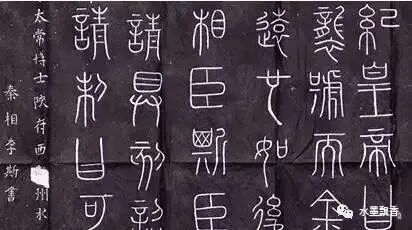 紀皇帝曰
襲號而金
遠也如後
相臣斯臣
請具刻詔
請制曰可
太常博士陝府西州水
秦相李斯書
水墨飘香